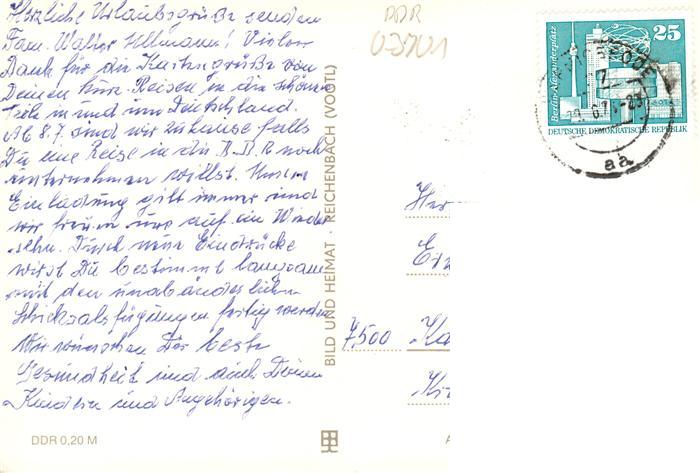 Herzliche Urlaubsgrüße senden
Fam. Walter Ullmann! Vielen
Dank für die Kartengrüße von
Deinen Kurz-Reisen in die schönen
Teile in und um Deutschland.
Ab 8.7. sind wir zuhause falls
Du eine Reise in die D.D.R noch
unternehmen willst. Unsere
Einladung gilt immer und
wir freuen uns auf ein Wieder
sehn. Durch neue Eindrücke
wirst Du bestimmt langsam
mit den unabänderlichen
Schicksalsfügungen fertig werden
Wir wünschen Dir beste
Gesundheit und auch Deinen
Kindern und Angehörigen.
DDR 0,20 M
BILD UND HEIMAT · REICHENBACH (VOGTL)
DDR
25
Berlin-Alexanderplatz
DEUTSCHE DEMOKRATISCHE REPUBLIK
aa
Her
7500 Ka